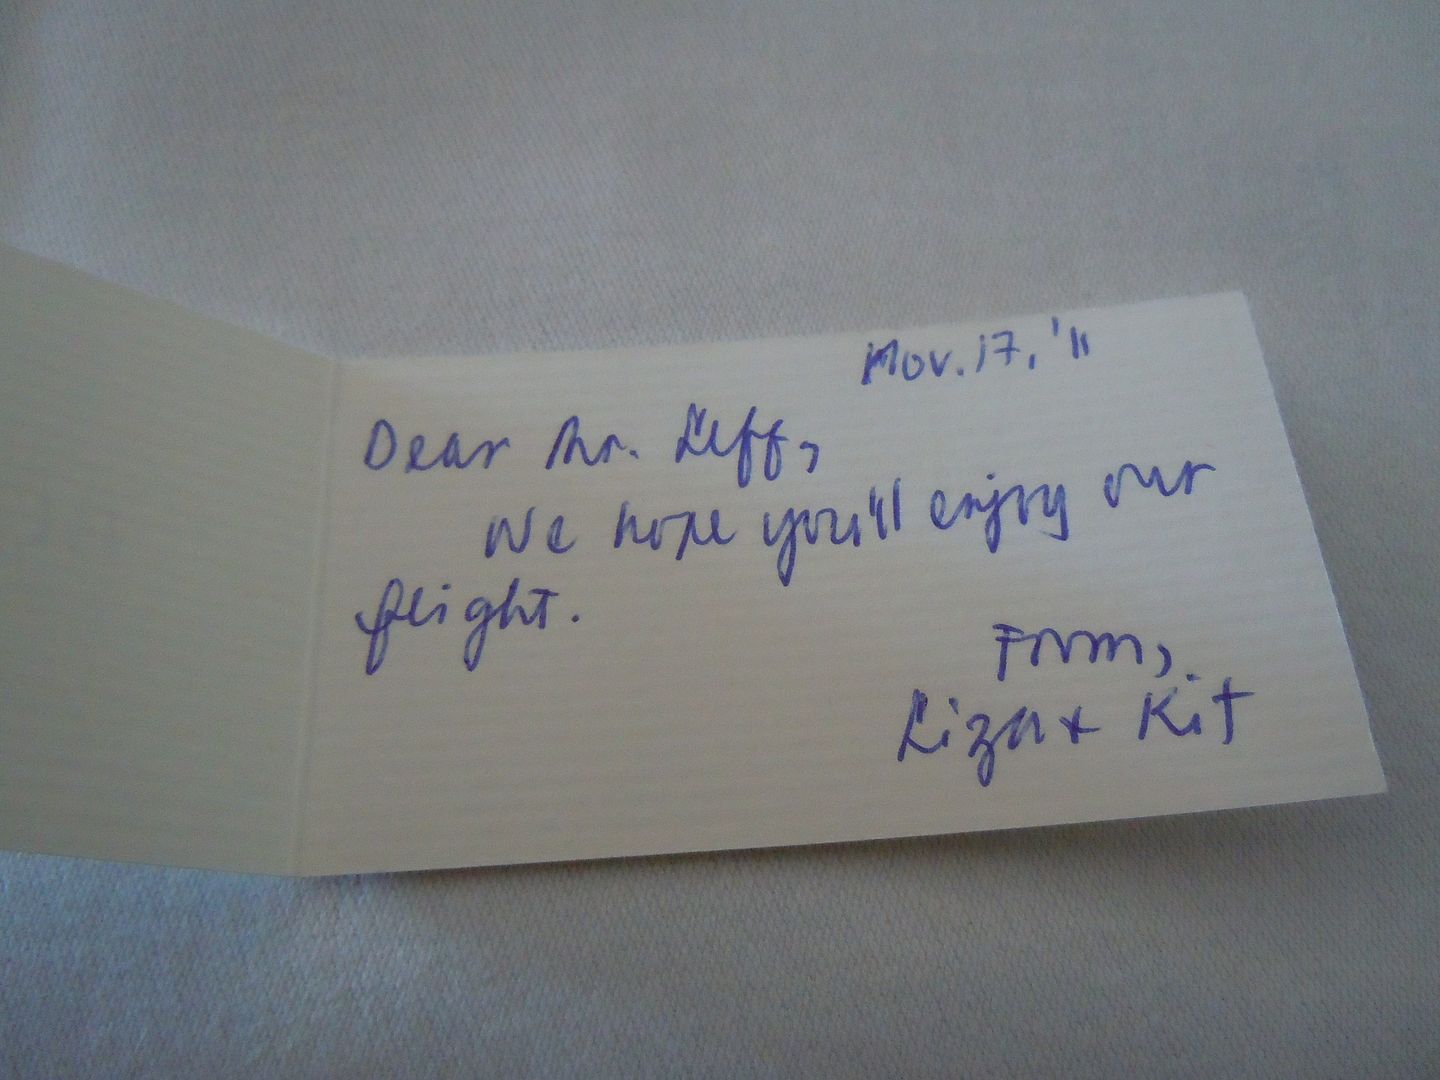 Nov. 17, '11
Dear Mr. Leff,
We hope you'll enjoy our
flight.
From,
Liza + Kit